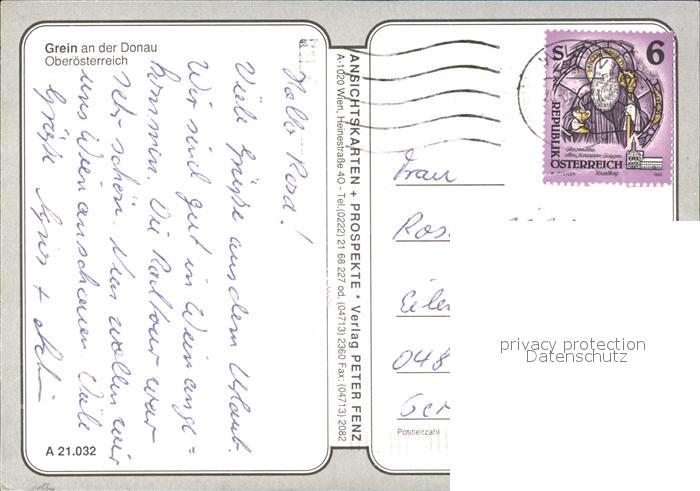 Grein an der Donau
Oberösterreich
Hallo Rosa!
Viele Grüße aus dem Urlaub.
Wir sind gut in Wien ange=
kommen. Die Radtour war
sehr schön. Nun wollen wir
uns Wien anschauen. Viele
Grüße Agnes +
A 21.032
ANSICHTSKARTEN + PROSPEKTE * Verlag PETER FENZ
A-1020 Wien, Heinestraße 40 - Tel.(0222) 21 68 227 od. (04713) 2360 Fax: (04713) 2082
6
S
REPUBLIK
ÖSTERREICH
Frau
Ros
Eile
048
Ger
Postleitzahl
privacy protection
Datenschutz